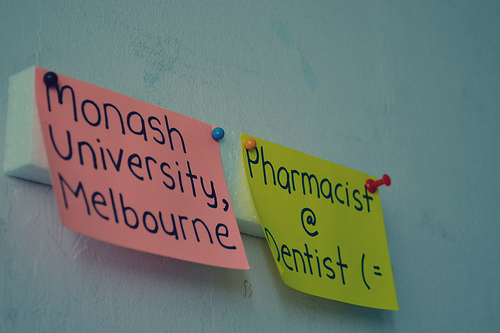 Monash
University,
Melbourne
Pharmacist
@
Dentist (=
B